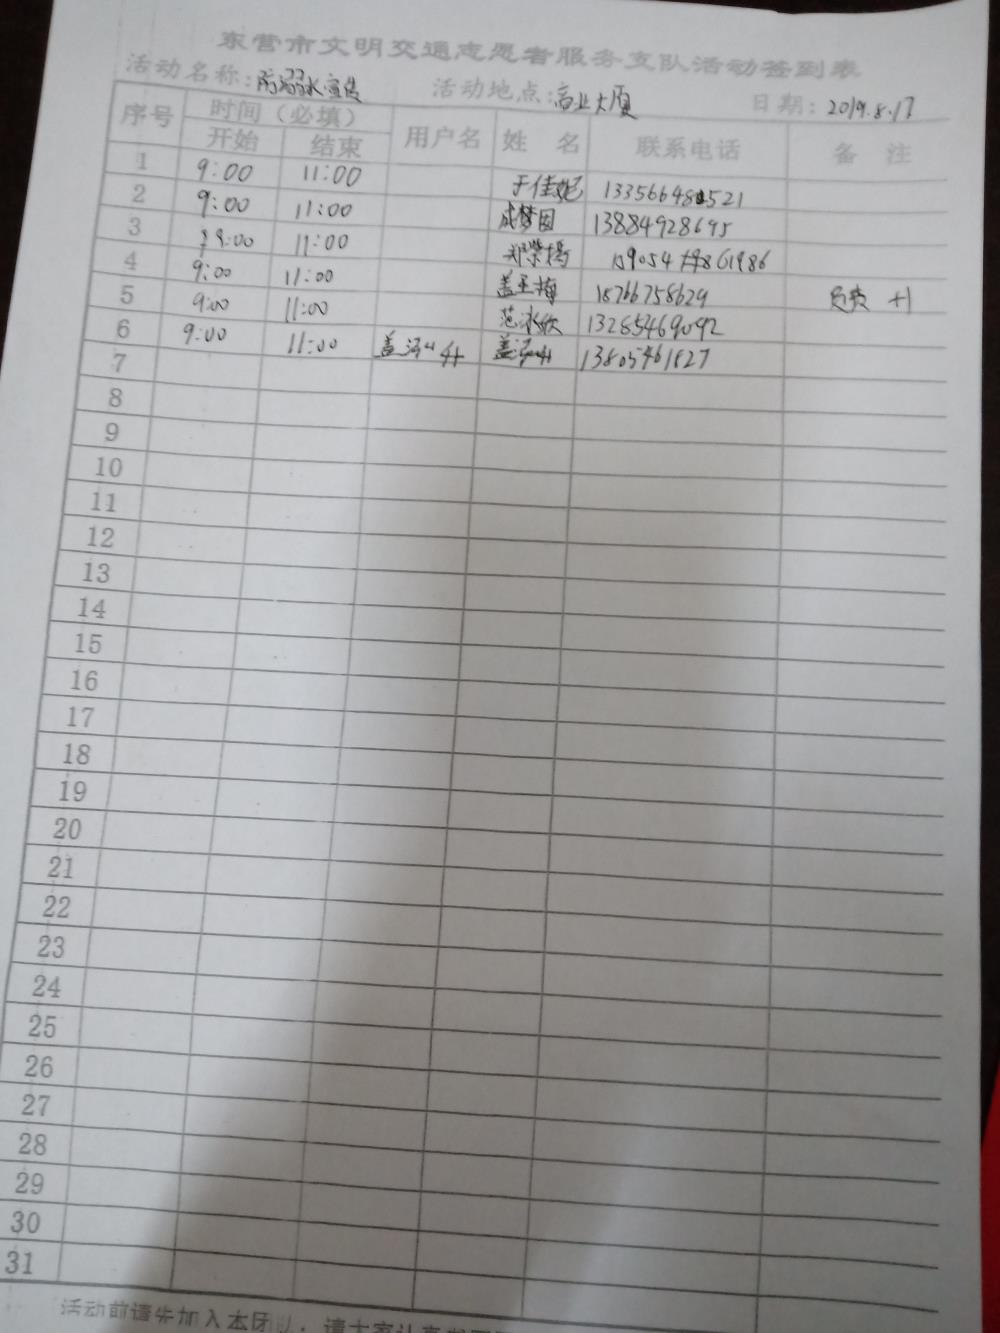 东营市文明交通志愿者服务支队活动签到表
活动名称:防溺水宣传 活动地点:商业大厦 日期: 2019.8.17
序号 时间(必填) 用户名 姓 名 联系电话 备 注
开始 结束
1 9:00 11:00 于佳妮
2 9:00 11:00 成梦因 13884928695
3 9:00 11:00 郑荣杨
4 9:00 11:00 盖玉梅 18766758629 +1
5 9:00 11:00 范冰欣 13285469092
6 9:00 11:00 盖 盖 13805461827
7
8
9
10
11
12
13
14
15
16
17
18
19
20
21
22
23
24
25
26
27
28
29
30
31
活动前请先加入本团